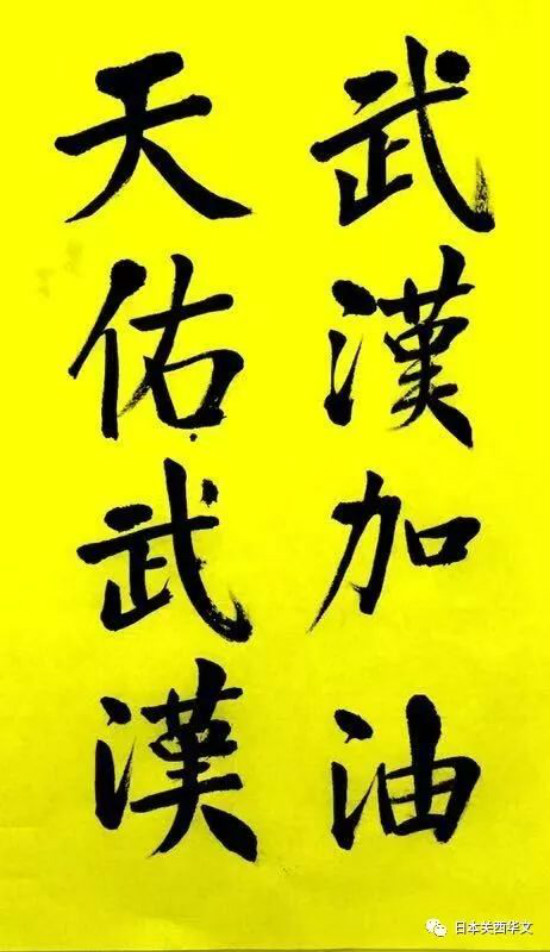 武漢加油
天佑武漢
日本关西华文